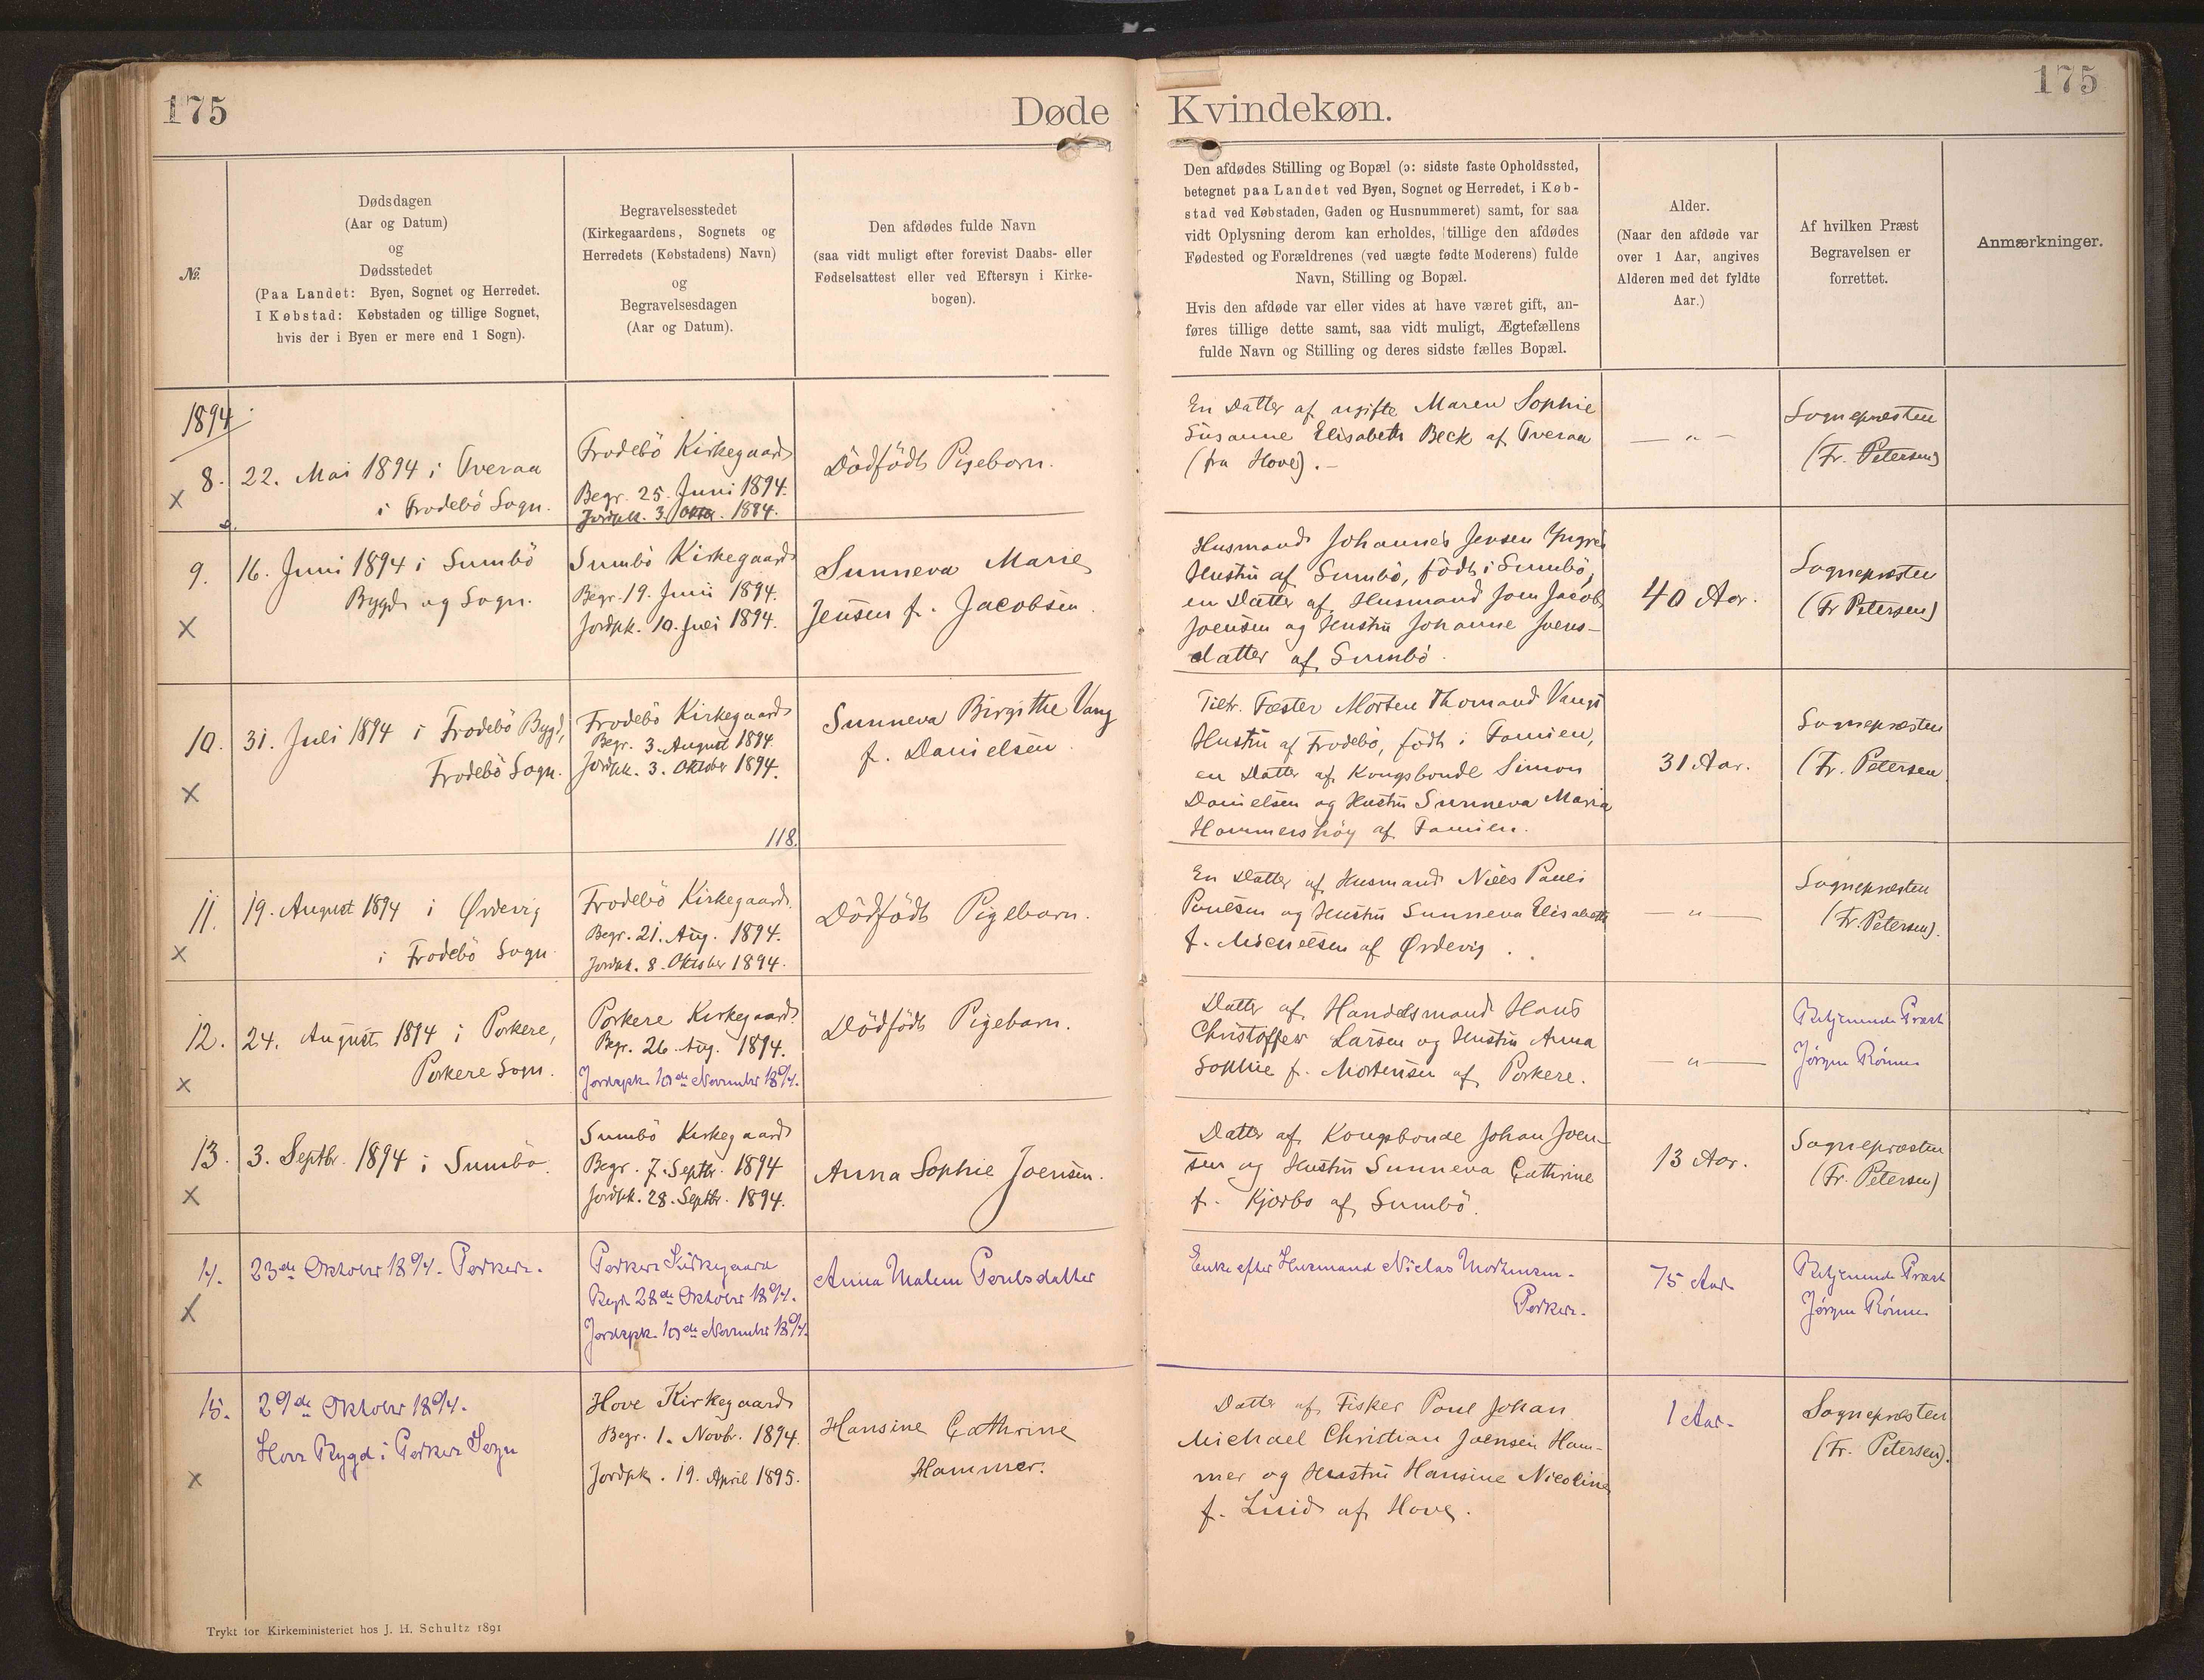 175
Døde
Kvindekøn.
175
№
Dødsdagen
(Aar og Datum)
og
Dødsstedet
(Paa Landet: Byen, Sognet og Herredet.
I Købstad: Købstaden og tillige Sognet,
hvis der i Byen er mere end 1 Sogn).
Begravelsesstedet
(Kirkegaardens, Sognets og
Herredets (Købstadens) Navn)
og
Begravelsesdagen
(Aar og Datum).
Den afdødes fulde Navn
(saa vidt muligt efter forevist Daabs- eller
Fødselsattest eller ved Eftersyn i Kirke-
bogen).
Den afdødes Stilling og Bopæl (ɔ: sidste faste Opholdssted,
betegnet paa Landet ved Byen, Sognet og Herredet, i Køb-
stad ved Købstaden, Gaden og Husnummeret) samt, for saa
vidt Oplysning derom kan erholdes, tillige den afdødes
Fødested og Forældrenes (ved uægte fødte Moderens) fulde
Navn, Stilling og Bopæl.
Hvis den afdøde var eller vides at have været gift, an-
føres tillige dette samt, saa vidt muligt, Ægtefællens
fulde Navn og Stilling og deres sidste fælles Bopæl.
Alder.
(Naar den afdøde var
over 1 Aar, angives
Alderen med det fyldte
Aar.)
Af hvilken Præst
Begravelsen er
forrettet.
Anmærkninger.
1894
8.
x
22. Mai 1894 i Tveraa
i Frodebö Sogn.
Frodebö Kirkegaard
Begr. 25. Juni 1894.
Jordpk. 3. 1894.
Dödfödt Pigebarn.
En Datter af ugifte Maren Sophie
Susanne Elisabeth Beck af Tveraa
(fra Hove). -
— " —
Sognepræsten
(Fr. Petersen)
9.
x
16. Juni 1894 i Sumbö
Bygd og Sogn.
Sumbö Kirkegaard
Begr. 19. Juni 1894.
Jordpk. 10. Juli 1894.
Sunneva Marie
Jensen f. Jacobsen.
Husmand Johannes Jensen Yngres
Hustru af Sumbö, född i Sumbö,
en Datter af Husmand Joen Jacob
Joensen og Hustru Johanne Joens-
datter af Sumbö.
40 Aar.
Sognepræsten
(Fr Petersen)
10.
x
31. Juli 1894 i Frodebö Bygd,
Frodebö Sogn.
Frodebö Kirkegaard
Begr. 3. August 1894.
Jordpk. 3. Oktober 1894.
118.
Sunneva Birgithe Vang
f. Danielsen.
Tiltr. Fæster Morten Thomand Vangs
Hustru af Frodebö, född i Famien,
en Datter af Kongsbonde Simon
Danielsen og Hustru Sunneva Maria
Hammershöy af Famien.
31 Aar.
Sognepræsten
(Fr. Petersen
11.
x
19. August 1894 i Ördevig
i Frodebö Sogn
Frodebö Kirkegaard.
Begr. 21. Aug. 1894.
Jordpk. 8. Oktober 1894.
Dödfödt Pigebarn.
En Datter af Husmand Niels Pauli
Poulsen og Hustru Sunneva Elisabeth
f. Michelsen af Ördevig.
— " —
Sognepræsten
(Fr. Petersen).
12.
x
24. August 1894 i Porkere,
Porkere Sogn.
Porkere Kirkegaard.
Begr. 26. Aug. 1894.
Jordspk. 10de November 1894.
Dödfödt Pigebarn.
Datter af Handelsmand Hans
Christoffer Larsen og Hustru Anna
Sophie f. Mortensen af Porkere.
— " —
Betjenende Præst
Jörgen Rönne
13.
x
3. Septbr. 1894 i Sumbö.
Sumbö Kirkegaard
Begr. 7. Septbr. 1894
Jordpk. 28. Septbr. 1894.
Anna Sophie Joensen.
Datter af Kongsbonde Johan Joen-
sen og Hustru Sunneva Cathrine
f. Kjærbo af Sumbö.
13 Aar.
Sognepræsten
(Fr. Petersen)
14.
x
23de Oktober 1894. Porkere.
Porkere Kirkegaard
Begr. 28de Oktober 1894.
Jordspk. 10de November 1894.
Anna Malene Poulsdatter
Enke efter Husmand Niclas Mortensen.
Porkere.
75 Aar.
Betjenende Præst
Jörgen Rönne
15.
x
29de Oktober 1894.
Hove Bygd i Porkere Sogn
Hove Kirkegaard
Begr. 1. Novbr. 1894.
Jordpk. 19. April 1895.
Hansine Cathrine
Hammer.
Datter af Fisker Poul Johan
Michael Christian Joensen Ham-
mer og Hustru Hansine Nicoline
f. Luid af Hove.
1 Aar.
Sognepræsten
(Fr. Petersen).
Trykt for Kirkeministeriet hos J. H. Schultz 1891